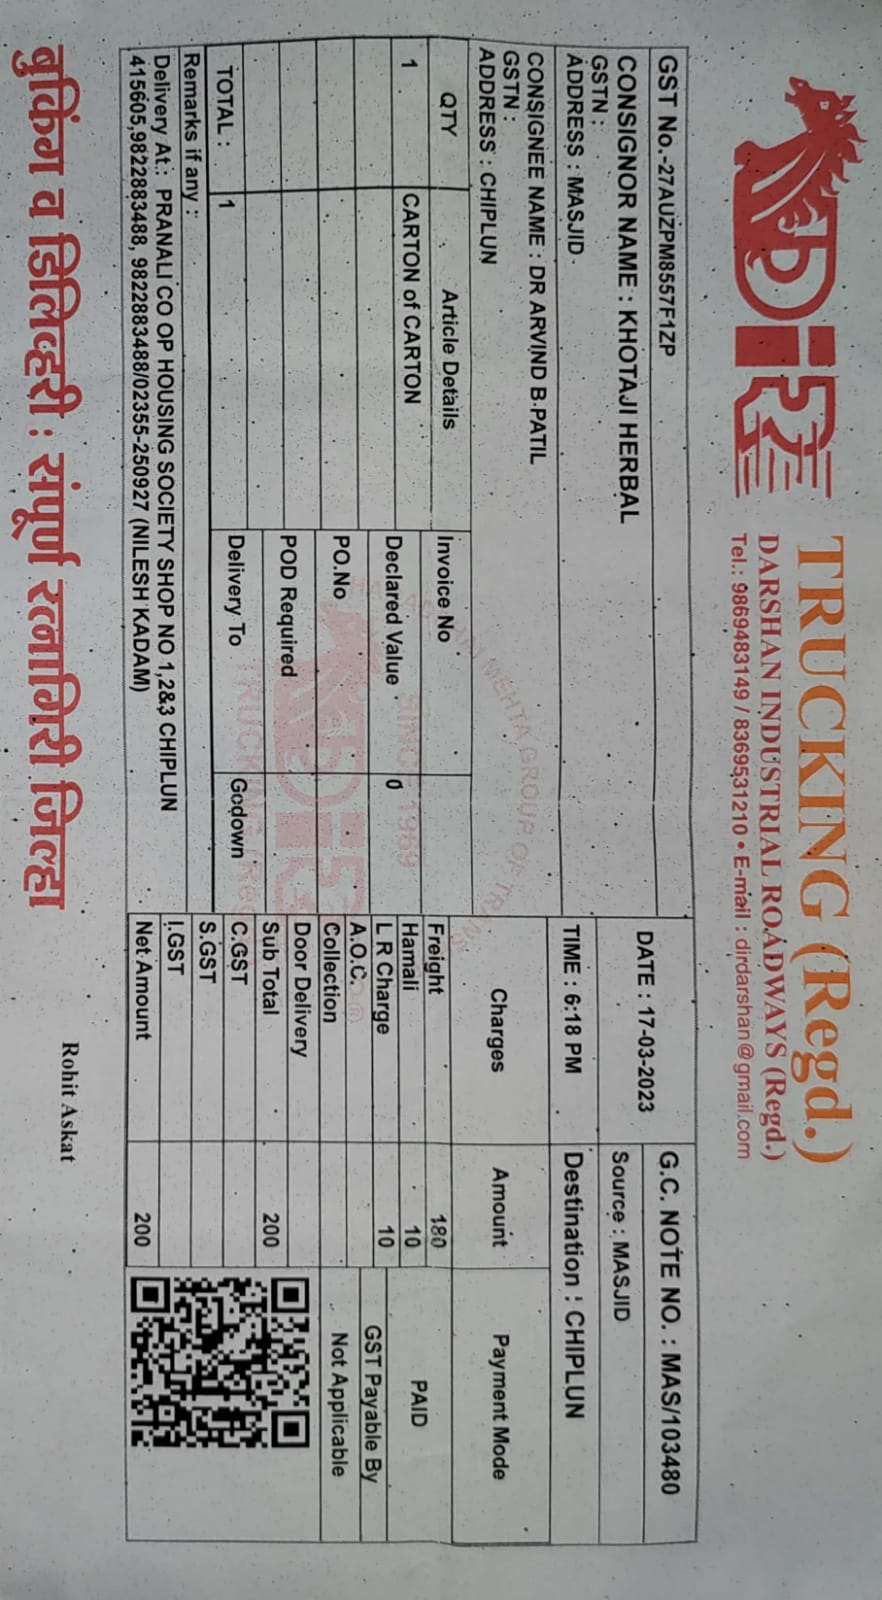 DIR
TRUCKING (Regd.)
DARSHAN INDUSTRIAL ROADWAYS (Regd.)
Tel.: 9869483149 / 8369531210 • E-mail : dirdarshan@gmail.com
GST No.-27AUZPM8557F1ZP
DATE : 17-03-2023
G.C. NOTE NO. : MAS/103480
CONSIGNOR NAME : KHOTAJI HERBAL
GSTN :
ADDRESS : MASJID
Source : MASJID
TIME : 6:18 PM
Destination : CHIPLUN
CONSIGNEE NAME : DR ARVIND B PATIL
GSTN :
ADDRESS : CHIPLUN
Charges Amount Payment Mode
QTY Article Details Invoice No Freight 180 PAID
1 CARTON of CARTON Declared Value 0 Hamali 10
L R Charge 10
A.O.C. GST Payable By
PO.No Collection Not Applicable
POD Required Door Delivery
Sub Total 200
TOTAL : 1 Delivery To Godown C.GST
Remarks if any : S.GST
I.GST
Delivery At.: PRANALI CO OP HOUSING SOCIETY SHOP NO 1,2&3 CHIPLUN
415605,9822883488, 9822883488/02355-250927 (NILESH KADAM)
Net Amount 200
MEHTA GROUP OF TRANS
SINCE 1969
DIR
TRUCKING (Regd
बुकिंग व डिलिव्हरी : संपूर्ण रत्नागिरी जिल्हा
Rohit Askat